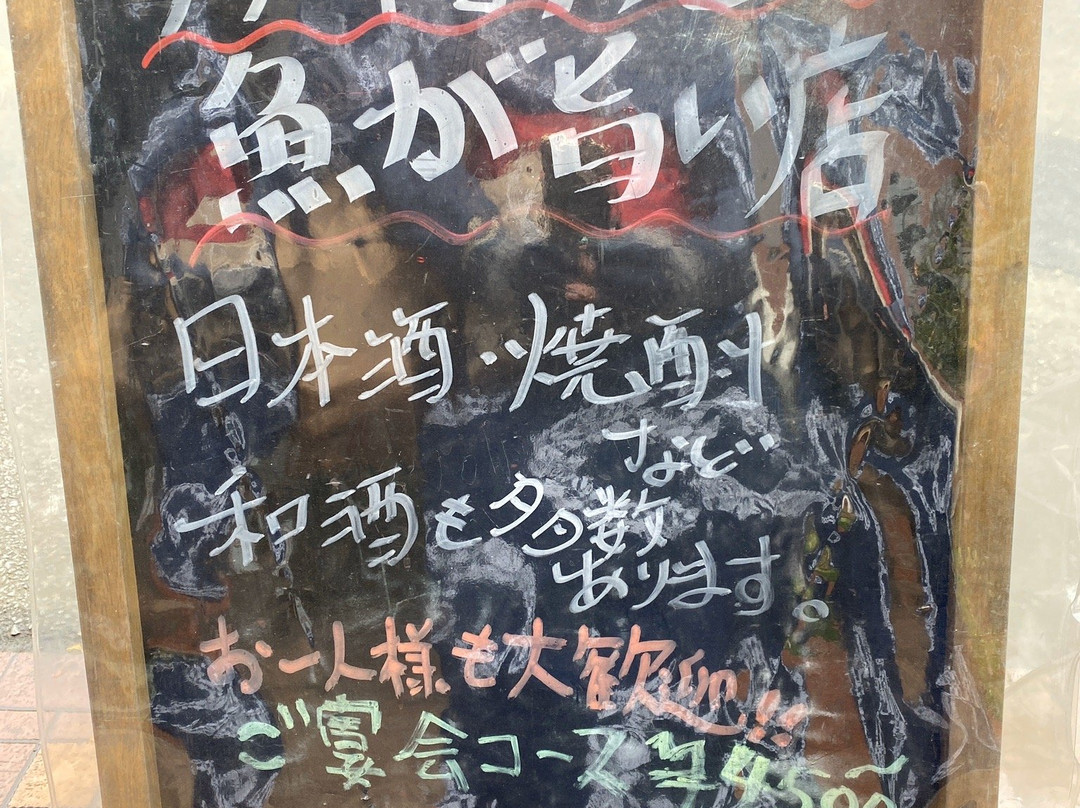 魚が旨い店
日本酒・焼酎
など
和酒も多数
あります。
お一人様も大歓迎!!
ご宴会コース¥4500〜